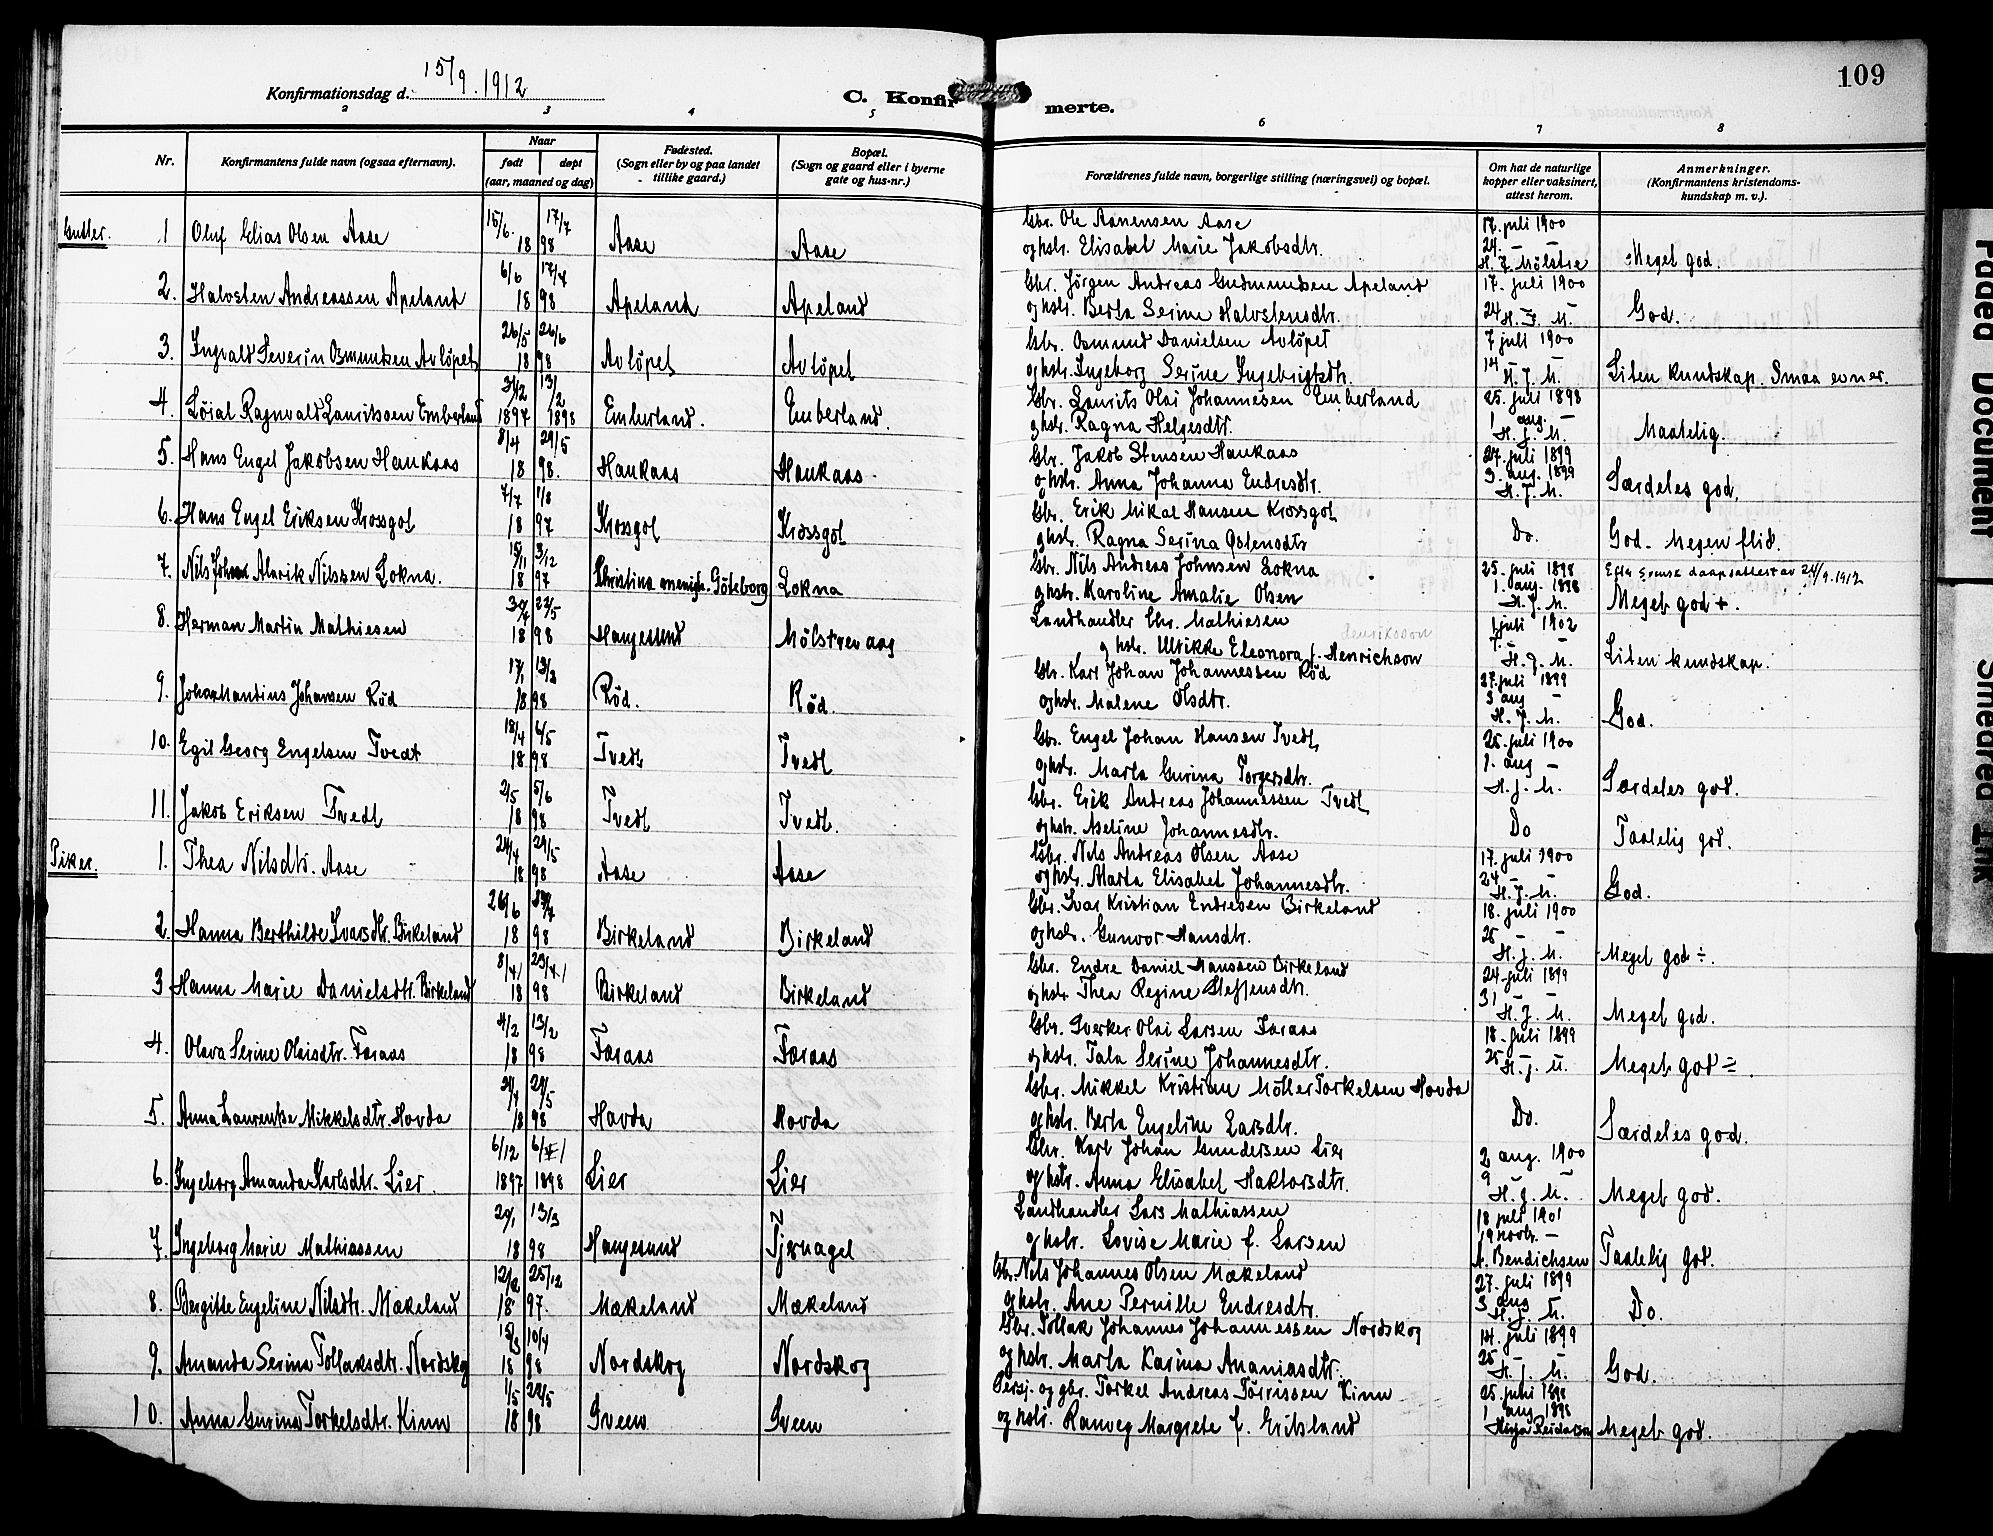 109
Konfirmationsdag d. 15/9. 1912
C. Konfirmerte.
2 3 4 5 6 7 8
Nr. Konfirmantens fulde navn (ogsaa efternavn).
Naar
født døpt
(aar, maaned og dag)
Fødested.
(Sogn eller by og paa landet
tillike gaard.)
Bopæl.
(Sogn og gaard eller i byerne
gate og hus-nr.)
Forældrenes fulde navn, borgerlige stilling (næringsvei) og bopæl.
Om hat de naturlige
kopper eller vaksinert,
attest herom.
Anmerkninger.
(Konfirmantens kristendoms-
kundskap m. v.).
Gutter. 1 Oluf Elias Olsen Aase 15/6. 17/7 18 98 Aase Aase Gbr. Ole Aanensen Aase
og hstr. Elisabet Marie Jakobsdtr. 17. juli 1900 24. – – H. J. Mölstre Meget god.
2. Halvsten Andreassen Apeland 6/6 17/7 18 98 Apeland Apeland Gbr. Jørgen Andreas Gudmundsen Apeland
og hstr. Berta Serine Halvstensdtr. 17. juli 1900 24 – – H. J. M. God.
3. Ingvald Severin Osmundsen Avløpet 26/5 26/6 18 98 Avløpet Avløpet Gbr. Osmund Danielsen Avløpet
og hstr. Ingeborg Serine Ingebrigtsdtr. 7 juli 1900 14 – – H. J. M. Liten kundskap. Smaa evner.
4. Loial Ragnvald Lauritsen Emberland 31/12 1897 13/2 1898 Emberland. Emberland. Gbr. Laurits Olai Johannesen Emberland
og hstr. Ragna Helgesdtr. 25. juli 1898 1 aug. – H. J. M. Maatelig.
5. Hans Engel Jakobsen Haukaas 8/4 29/5 18 98. Haukaas Haukaas Gbr. Jakob Stensen Haukaas
og hstr. Anna Johanna Endresdtr. 27. juli 1899 3. aug. 1899 H. J. M. Særdeles god.
6. Hans Engel Eriksen Krossgot 7/7 1/8 18 97 Krossgot Krossgot Gbr. Erik Mikal Hansen Krossgot
og hstr. Ragna Serina Ostensdtr Do. God. Megen flid.
7. Nils Johan Alarik Nilssen Lokna. 15/11 3/12 18 97 Christina menigh. Göteborg Lokna Gbr. Nils Andreas Johnsen Lokna
og hstr. Karoline Amalie Olsen 25. juli 1898 1. aug. 1898 H. J. M. Efter svensk daapsattest av 24/9. 1912
Meget god +.
8. Herman Martin Mathiesen 30/4 22/5 18 98 Haugesund Mölstrevaag Landhandler Chr. Mathiesen
og hstr. Ulrikke Eleonora f. Henrichson Henriksson 1 juli 1902 7. – – H. J. M. Liten kundskap.
9. Johan Mandius Johansen Rød 17/1 13/2 18 98 Rød. Rød. Gbr. Karl Johan Johannessen Rød
og hstr. Malene Olsdtr. 27. juli 1899 3 aug – H. J. M. God.
10. Egil Georg Engelsen Tvedt 18/4 6/5 18 98 Tvedt Tvedt Gbr. Engel Johan Hansen Tvedt
og hstr. Marta Gurina Torgersdtr. 25. juli 1900 1. aug – H. J. M. Særdeles god.
11. Jakob Eriksen Tvedt 2/5 5/6 18 98 Tvedt Tvedt. Gbr. Erik Andreas Johannessen Tvedt
og hstr. Aseline Johannesdtr. Do Taalelig god.
Piker. 1. Thea Nilsdtr. Aase 24/4 29/5 18 98 Aase Aase Gbr. Nils Andreas Olsen Aase
og hstr. Marta Elisabet Johannesdtr. 17. juli 1900 24 – – H. J. M. God.
2. Hanna Berthilde Ivarsdtr. Birkeland 18 98 Birkeland Birkeland Gbr. Ivar Kristian Endresen Birkeland
og hstr. Gunvor Hansdtr. 18. juli 1900 25 – – H. J. M. Meget god ÷.
3 Hanna Marie Danielsdtr. Birkeland 18 98 Birkeland Birkeland Gbr. Endre Daniel Hanssen Birkeland
og hstr Thea Regine Steffensdtr. 24. juli 1899 31 – – H. J. M. Meget god.
4. Olava Serine Olaisdtr. Færaas 4/2 13/2 18 98 Færaas Færaas Gbr. Sverker Olai Larsen Færaas
og hstr. Tala Serine Johannesdtr. 18. juli 1899 25 – – H. J. M. Meget god ÷.
5. Anna Laurentse Mikkelsdtr. Hovda 24/4 29/5 18 98 Hovda Hovda Gbr. Mikkel Kristian Möller Torkelsen Hovda
og hstr. Berta Engeline Larsdtr. Do. Særdeles god.
6. Ingeborg Amanda Karlsdtr. Lier. 6/12 1897 1898 Lier Lier Gbr. Karl Johan Gundersen Lier
og hstr. Anna Elisabet Haktorsdtr. 2 aug. 1900 9 – – H. J. M. Meget god.
7. Ingeborg Marie Mathiassen 29/1 13/3 18 98 Haugesund Tjernagel Landhandler Lars Mathiassen
og hstr. Lovise Marie f. Larsen 18 juli 1901 19 novbr. – A. Bendichsen Taalelig god.
8. Bergitte Engeline Nilsdtr. Mækeland 12/12 25/12 18 97. Mækeland Mækeland Gbr. Nils Johannes Olsen Mækeland
og hstr. Ane Pernille Endresdtr. 27. juli 1899 3 aug – H. J. M. Do.
9. Amanda Serina Tollaksdtr. Nordskog 15/3 10/4 18 98 Nordskog Nordskog Gbr. Tollak Johannes Johannessen Nordskog
og hstr. Marta Karina Ananiasdtr. 14. juli 1899 25 – – H. J. M. God.
10. Anna Gurina Torkelsdtr. Kinn 1/5 22/5 18 98 Sveen Sveen Persj. og gbr. Torkel Andreas Tørrissen Kinn
og hstr. Ranveg Margrete f. Eriksland 25. juni 1898 1 aug 1898 Meget god.
Faded Document
Smeared Ink